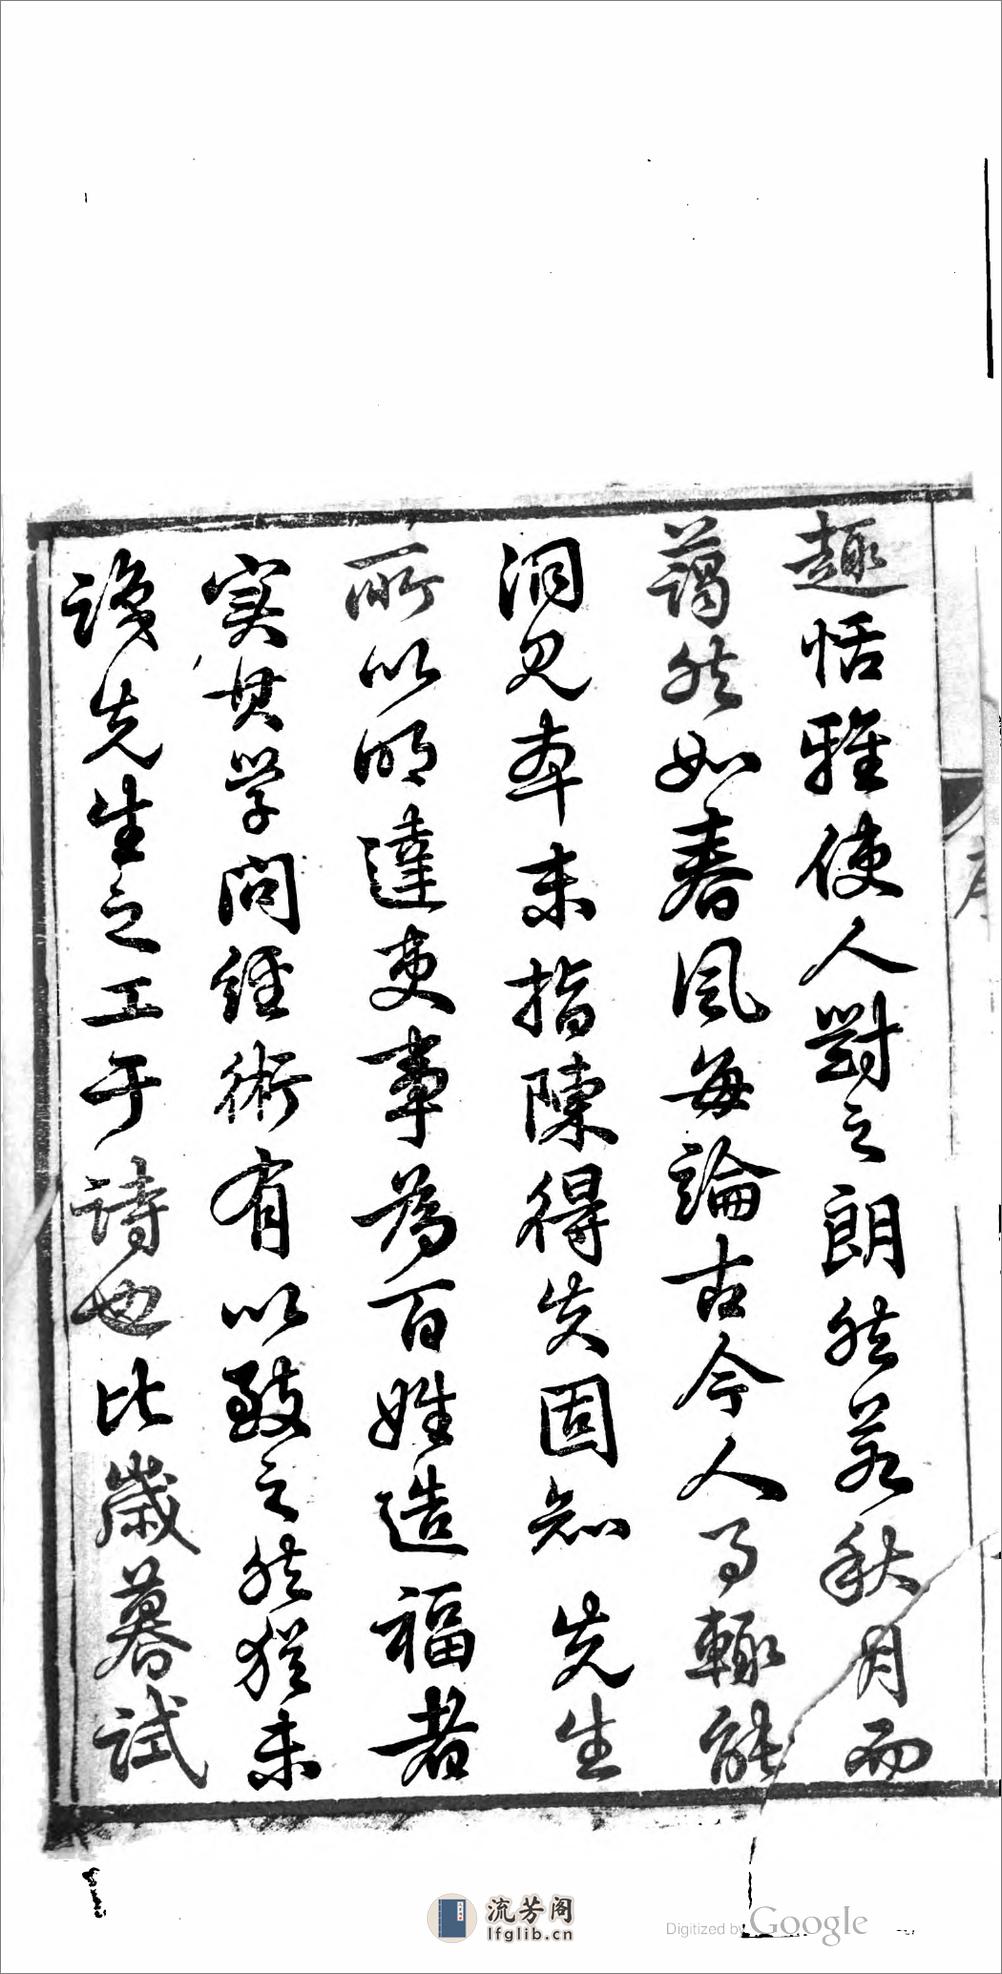 趣恬雅使人對之朗然若秋月而
藹然如春風每論古今人事輒能
洞見本末指陳得失固知先生
所以明達吏事為百姓造福者
实其学問經術有以致之然猶未
識先生之工于詩也比歲暮試
序
流芳阁
lfglib.cn
Digitized by Google